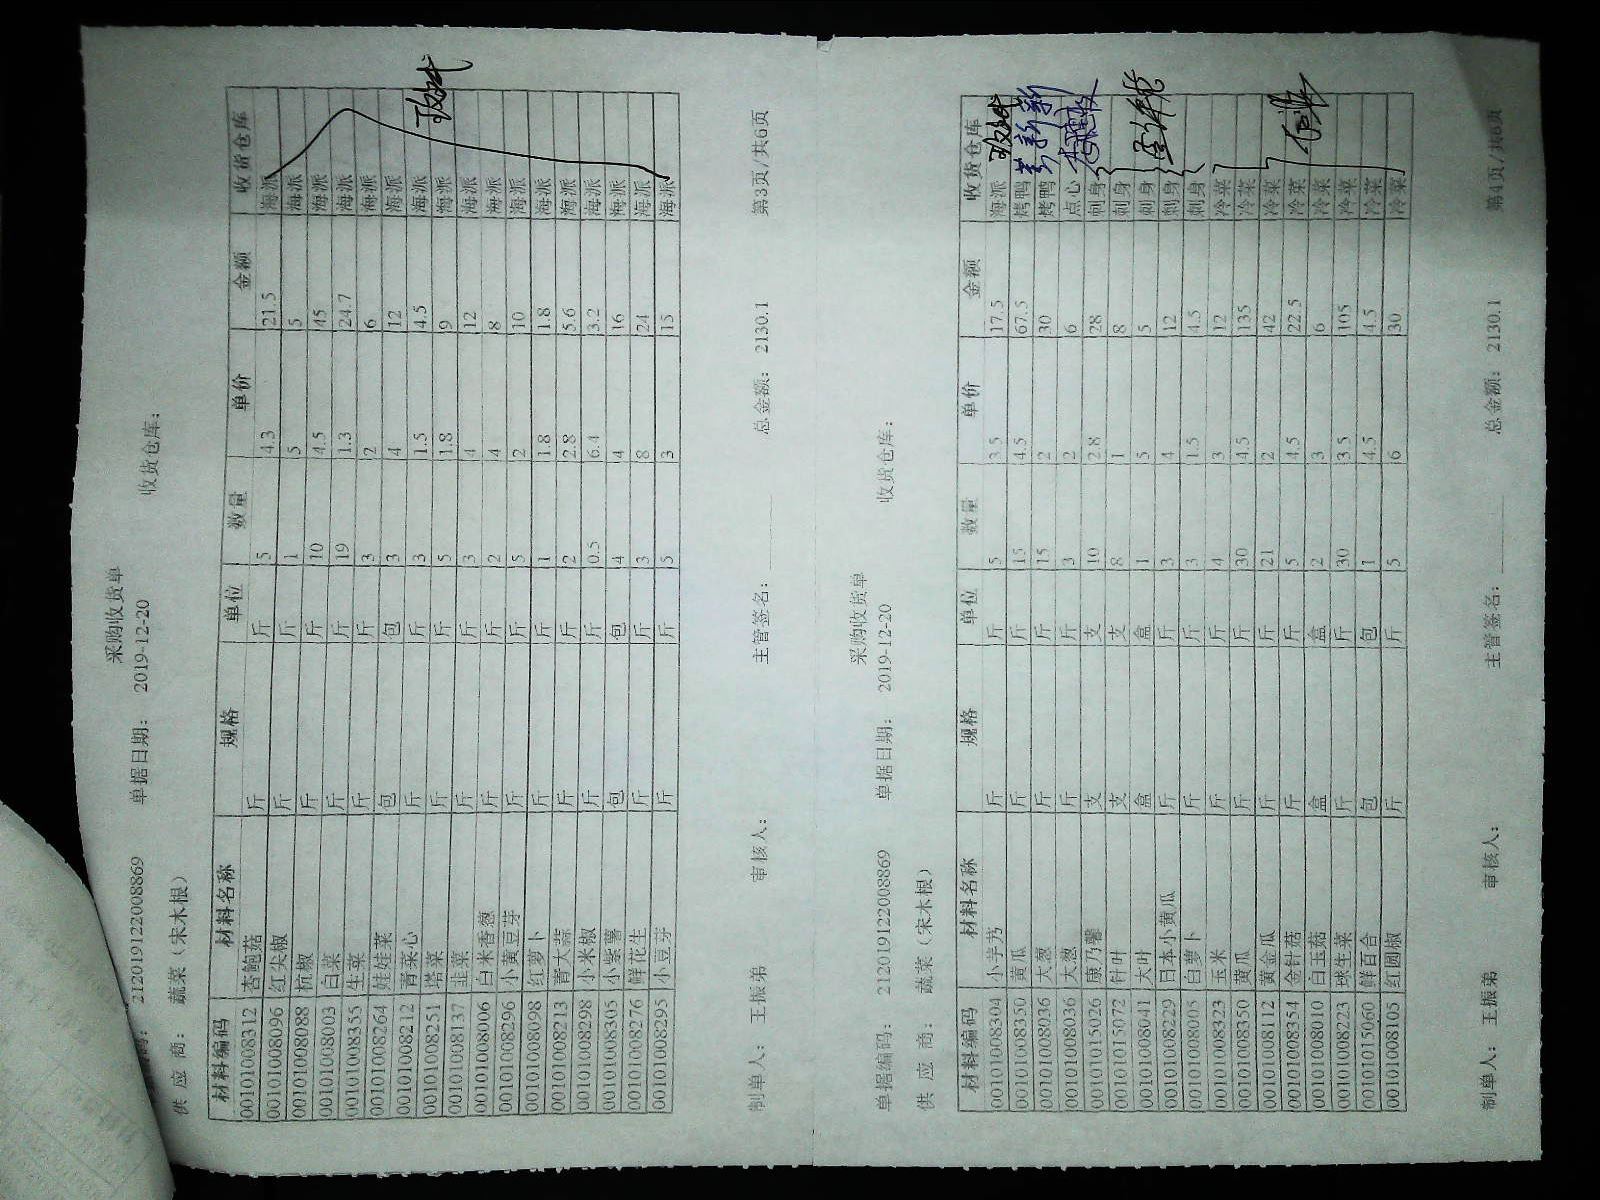 采购收货单
212019122008869 单据日期： 2019-12-20 收货仓库：
供 应 商： 蔬菜（宋木根）
材料编码 材料名称 规格 单位 数量 单价 金额 收货仓库
00101008312 杏鲍菇 斤 斤 5 4.3 21.5 海派
00101008096 红尖椒 斤 斤 1 5 5 海派
00101008088 杭椒 斤 斤 10 4.5 45 海派
00101008003 白菜 斤 斤 19 1.3 24.7 海派
00101008355 生菜 斤 斤 3 2 6 海派
00101008264 娃娃菜 包 包 3 4 12 海派
00101008212 青菜心 斤 斤 3 1.5 4.5 海派
00101008251 塔菜 斤 斤 5 1.8 9 海派
00101008137 韭菜 斤 斤 3 4 12 海派
00101008006 白米香葱 斤 斤 2 4 8 海派
00101008296 小黄豆芽 斤 斤 5 2 10 海派
00101008098 红萝卜 斤 斤 1 1.8 1.8 海派
00101008213 青大蒜 斤 斤 2 2.8 5.6 海派
00101008298 小米椒 斤 斤 0.5 6.4 3.2 海派
00101008305 小紫薯 包 包 4 4 16 海派
00101008276 鲜花生 斤 斤 3 8 24 海派
00101008295 小豆芽 斤 斤 5 3 15 海派
制单人： 王振弟 审核人： 主管签名： 总金额： 2130.1 第3页/共6页
采购收货单
单据编码： 212019122008869 单据日期： 2019-12-20 收货仓库：
供 应 商： 蔬菜（宋木根）
材料编码 材料名称 规格 单位 数量 单价 金额 收货仓库
00101008304 小芋艿 斤 斤 5 3.5 17.5 海派
00101008350 黄瓜 斤 斤 15 4.5 67.5 烤鸭
00101008036 大葱 斤 斤 15 2 30 烤鸭
00101008036 大葱 斤 斤 3 2 6 点心
00101015026 康乃馨 支 支 10 2.8 28 刺身
00101015072 针叶 支 支 8 1 8 刺身
00101008041 大叶 盒 盒 1 5 5 刺身
00101008229 日本小黄瓜 斤 斤 3 4 12 刺身
00101008005 白萝卜 斤 斤 3 1.5 4.5 刺身
00101008323 玉米 斤 斤 4 3 12 冷菜
00101008350 黄瓜 斤 斤 30 4.5 135 冷菜
00101008112 黄金瓜 斤 斤 21 2 42 冷菜
00101008354 金针菇 斤 斤 5 4.5 22.5 冷菜
00101008010 白玉菇 盒 盒 2 3 6 冷菜
00101008223 球生菜 斤 斤 30 3.5 105 冷菜
00101015060 鲜百合 包 包 1 4.5 4.5 冷菜
00101008105 红圆椒 斤 斤 5 6 30 冷菜
制单人： 王振弟 审核人： 主管签名： 总金额： 2130.1 第4页/共6页